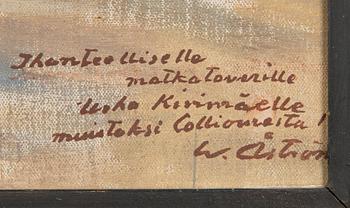 Ihanteelliselle
matkatoverille
Usko Kivimäelle
muistoksi Colliouresta!
W. Åström